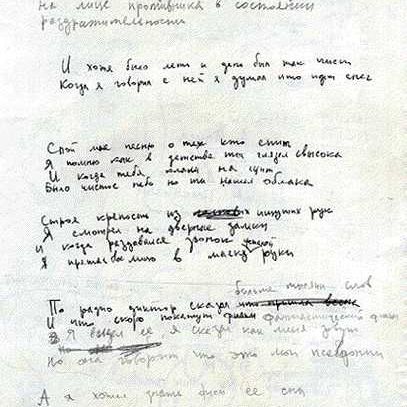 на лице противника в состоянии
раздражительности
И хотя было лето и день был так чист
Когда я говорил с ней я думал что идёт снег
Спой мне песню о тех кто спит
Я помню как в детстве ты глядел свысока
И когда тебя клали на щит
Было чистое небо но ты нашел облака
Строя крепость из ищущих рук
Я смотрел на дверные замки
И когда раздавался звонок
Я прятал лицо в маску руки
больше тысячи слов
По радио диктор сказал что пришла весна
И что скоро покажут фильм фантастический фильм
Я видел её я сказал как меня зовут
Но она говорит что это мой псевдоним
А я хотел знать её